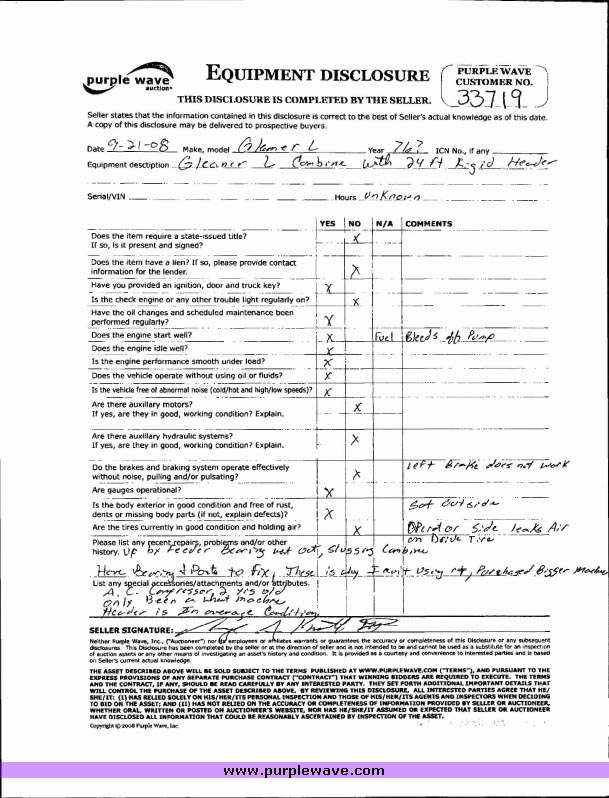 purple wave
auction®
EQUIPMENT DISCLOSURE
PURPLE WAVE
CUSTOMER NO.
33719
THIS DISCLOSURE IS COMPLETED BY THE SELLER.
Seller states that the information contained in this disclosure is correct to the best of Seller's actual knowledge as of this date.
A copy of this disclosure may be delivered to prospective buyers.
Date 9-21-08 Make, model L Year 76? ICN No., if any
Equipment description Gleaner L Combine with 24 ft Rigid Header
Serial/VIN Hours unknown
YES NO N/A COMMENTS
Does the item require a state-issued title? X
If so, is it present and signed?
Does the item have a lien? If so, please provide contact
information for the lender. X
Have you provided an ignition, door and truck key? X
Is the check engine or any other trouble light regularly on? X
Have the oil changes and scheduled maintenance been
performed regularly? X
Does the engine start well? X Fuel Bleeds off Pump
Does the engine idle well? X
Is the engine performance smooth under load? X
Does the vehicle operate without using oil or fluids? X
Is the vehicle free of abnormal noise (cold/hot and high/low speeds)? X
Are there auxiliary motors? X
If yes, are they in good, working condition? Explain.
Are there auxiliary hydraulic systems? X
If yes, are they in good, working condition? Explain.
Do the brakes and braking system operate effectively Left Brake does not work
without noise, pulling and/or pulsating? X
Are gauges operational? X
Is the body exterior in good condition and free of rust, Sat outside
dents or missing body parts (if not, explain defects)? X
Are the tires currently in good condition and holding air? X Operator side leaks Air
on Drive Tire
Please list any recent repairs, problems and/or other
history. Up by Feeder Bearing went out, Slugging Combine
Have Bearing & Parts to Fix, These is why I quit Using it, Purchased Bigger Machine
List any special accessories/attachments and/or attributes.
A.C. Compressor 2 yrs old
only Been a wheat machine
Header is In average Condition
SELLER SIGNATURE:
Neither Purple Wave, Inc., ("Auctioneer") nor its employees or affiliates warrants or guarantees the accuracy or completeness of this Disclosure or any subsequent
disclosures. This Disclosure has been completed by the seller or at the direction of seller and is not intended to be and cannot be used as a substitute for an inspection
of auction assets or any other means of investigating an asset's history and condition. It is provided as a courtesy and convenience to interested parties and is based
on Seller's current actual knowledge.
THE ASSET DESCRIBED ABOVE WILL BE SOLD SUBJECT TO THE TERMS PUBLISHED AT WWW.PURPLEWAVE.COM ("TERMS"), AND PURSUANT TO THE
EXPRESS PROVISIONS OF ANY SEPARATE PURCHASE CONTRACT ("CONTRACT") THAT WINNING BIDDERS ARE REQUIRED TO EXECUTE. THE TERMS
AND THE CONTRACT, IF ANY, SHOULD BE READ CAREFULLY BY ANY INTERESTED PARTY. THEY SET FORTH ADDITIONAL IMPORTANT DETAILS THAT
WILL CONTROL THE PURCHASE OF THE ASSET DESCRIBED ABOVE. BY REVIEWING THIS DISCLOSURE, ALL INTERESTED PARTIES AGREE THAT HE/
SHE/IT: (I) HAS RELIED SOLELY ON HIS/HER/ITS PERSONAL INSPECTION AND THOSE OF HIS/HER/ITS AGENTS AND INSPECTORS WHEN DECIDING
TO BID ON THE ASSET; AND (II) HAS NOT RELIED ON THE ACCURACY OR COMPLETENESS OF INFORMATION PROVIDED BY SELLER OR AUCTIONEER,
WHETHER ORAL, WRITTEN OR POSTED ON AUCTIONEER'S WEBSITE, NOR HAS HE/SHE/IT ASSUMED OR EXPECTED THAT SELLER OR AUCTIONEER
HAVE DISCLOSED ALL INFORMATION THAT COULD BE REASONABLY ASCERTAINED BY INSPECTION OF THE ASSET.
Copyright © 2008 Purple Wave, Inc.
www.purplewave.com